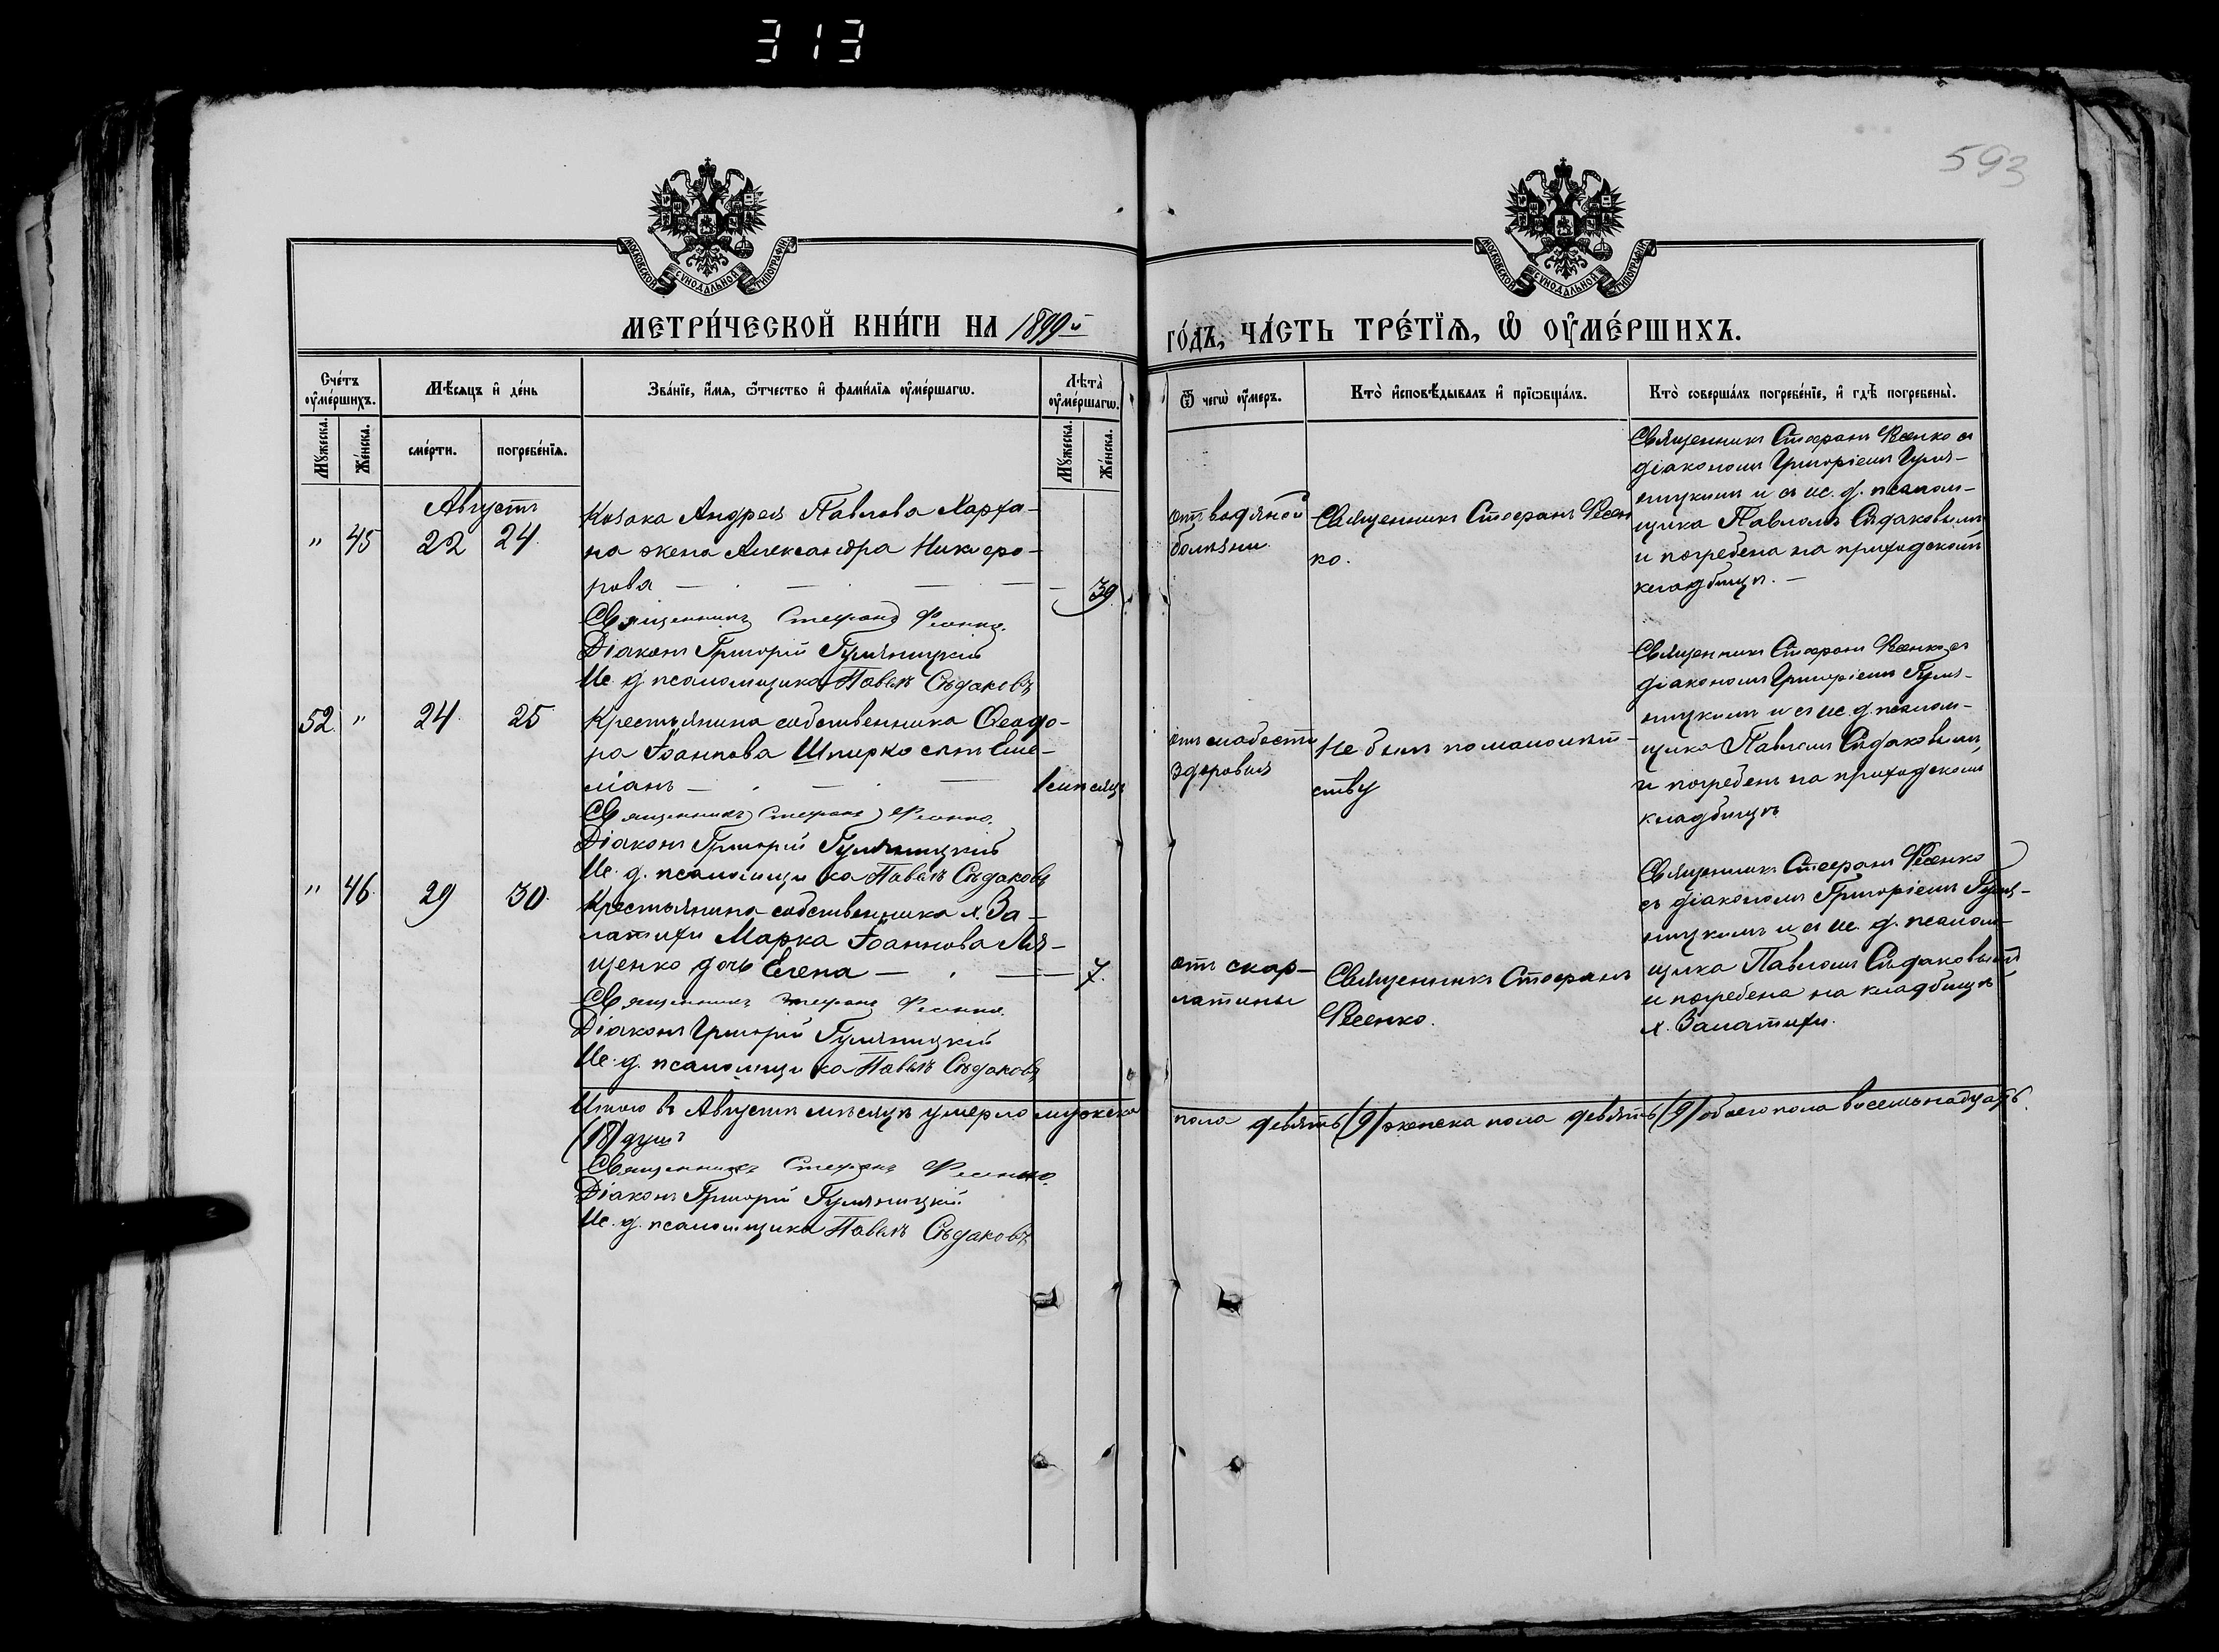 313
593
МОСКОВСКОЙ СУНОДАЛЬНОЙ ТИПОГРАФІИ
МОСКОВСКОЙ СУНОДАЛЬНОЙ ТИПОГРАФІИ
МЕТРИ́ЧЕСКОЙ КНИ́ГИ НА 1899й
ГО́ДЪ, ЧА́СТЬ ТРЕ́ТЇѦ, Ѡ ОУ҆МЕ́РШИХЪ.
Сче́тъ оу҆ме́ршихъ.
Мѣ́сяцъ и҆ де́нь
Зва́нїе, и҆́мя, ѻ҆́тчество и҆ фами́лїя оу҆ме́ршагѡ.
Лѣ́та оу҆ме́ршагѡ.
Ѿ чегѡ̀ оу҆́меръ.
Кто̀ и҆сповѣ́дывалъ и҆ прїѡбща́лъ.
Кто̀ соверша́лъ погребе́нїе, и҆ гдѣ̀ погребены̀.
Мꙋ́жеска.
Же́нска.
сме́рти.
погребе́нїя.
Мꙋ́жеска.
Же́нска.
Августъ
" 45 22 24
Козака Андрея Павлова Харха-
на жена Александра Никифо-
рова — — — — 39
Священникъ Стефанъ Фесенко.
Діаконъ Григорій Гуляницкій
Ис. д. псаломщика Павелъ Сѣдаковъ
отъ водяной
болѣзни
Священникъ Стефанъ Фесен
ко.
Священникъ Стефанъ Фесенко съ
діакономъ Григоріемъ Гуля-
ницкимъ и съ ис. д. псалом-
щика Павломъ Сѣдаковымъ
и погребена на приходскомъ
кладбищѣ. —
52 " 24 25
Крестьянина собственника Ѳеодо-
ра Іоаннова Шпирко сынъ Еми-
ліанъ — — — 1 мѣсяцъ
Священникъ Стефанъ Фесенко.
Діаконъ Григорій Гуляницкій
Ис. д. псаломщика Павелъ Сѣдаковъ
отъ слабости
здоровья
Не былъ по малолѣт-
ству
Священникъ Стефанъ Фесенко съ
діакономъ Григоріемъ Гуля-
ницкимъ и съ ис. д. псалом-
щика Павломъ Сѣдаковымъ
и погребенъ на приходскомъ
кладбищѣ
" 46 29 30
Крестьянина-собственника х. За-
латихи Марка Іоаннова Ля-
щенко дочь Елена — — 7.
Священникъ Стефанъ Фесенко.
Діаконъ Григорій Гуляницкій
Ис. д. псаломщика Павелъ Сѣдаковъ
отъ скар-
латины
Священникъ Стефанъ
Фесенко.
Священникъ Стефанъ Фесенко
съ діакономъ Григоріемъ Гуля-
ницкимъ и съ ис. д. псалом-
щика Павломъ Сѣдаковымъ
и погребена на кладбищѣ
х. Залатихи.
Итого въ Августѣ мѣсяцѣ умерло мужеска пола девять (9) женска пола девять (9) обоего пола восемьнадцать
(18) душъ
Священникъ Стефанъ Фесенко.
Діаконъ Григорій Гуляницкій
Ис. д. псаломщика Павелъ Сѣдаковъ